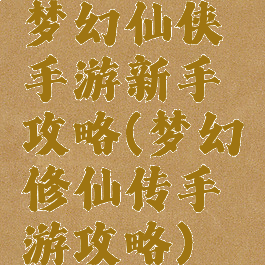 梦幻仙侠
手游新手
攻略(梦幻
修仙传手
游攻略)